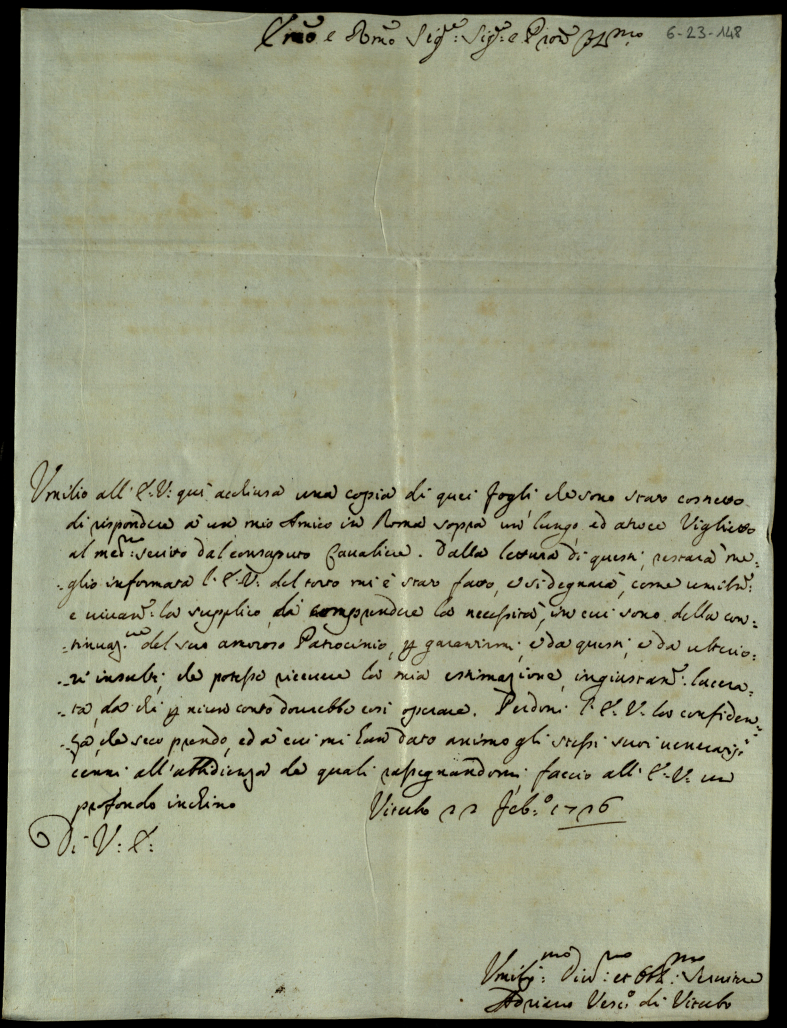 Em̃o e Rmõ Sig.e Sig.e e Pron̄ Col.mo 6-23-148
Umilio all'E.V: qui acchiusa una copia di quei fogli che sono stato costretto
di rispondere à un mio Amico in Roma sopra un'lungo, ed atroce Viglietto
al med.mo scritto dal consaputo Cavaliere. Dalla lettura di questi, restarà me:
:glio informata l'E.V. del torto mi è stato fatto, e si degnarà, come umilm.e
e vivam.e la supplico, di comprendere la necessità, in cui sono della con:
:tinuaz.ne del suo amoroso Patrocinio, p garantirmi, e da questi, e da ulterio:
:ri insulti, che potesse ricevere la mia estimazione, ingiustam.e lacera:
:ta, da chi p niun conto dovrebbe così operare. Perdoni l'E.V. la confiden:
:za, che seco prendo, ed à cui mi han dato animo gli stessi suoi veneratiss.i
cenni all'ubbidienza de quali rassegnandomi, faccio all'E.V. un
profondo inchino Viterbo 22 Feb.o 1726
Di V: E:
Umiliss.mo Div.mo et Obl.mo Servitore
Adriano Vesc.o di Viterbo